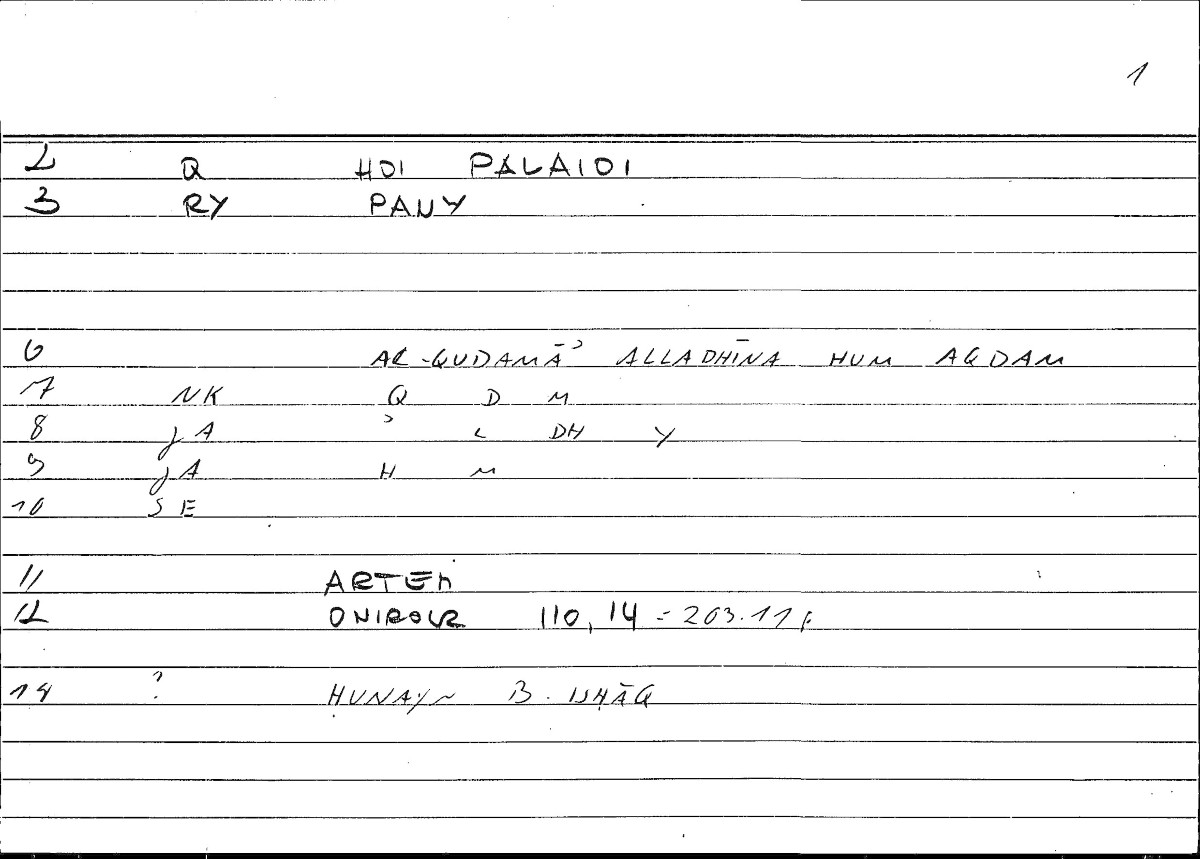 1
2 Q HOI PALAIOI
3 RY PANY
6 AL-QUDAMĀʾ ALLADHĪNA HUM AQDAM
7 NK Q D M
8 JA ʾ L DH Y
9 JA H M
10 SE
11 ARTEM
12 ONIROCR 110,14 = 203.11 f.
14 ? ḤUNAYN B. ISḤĀQ